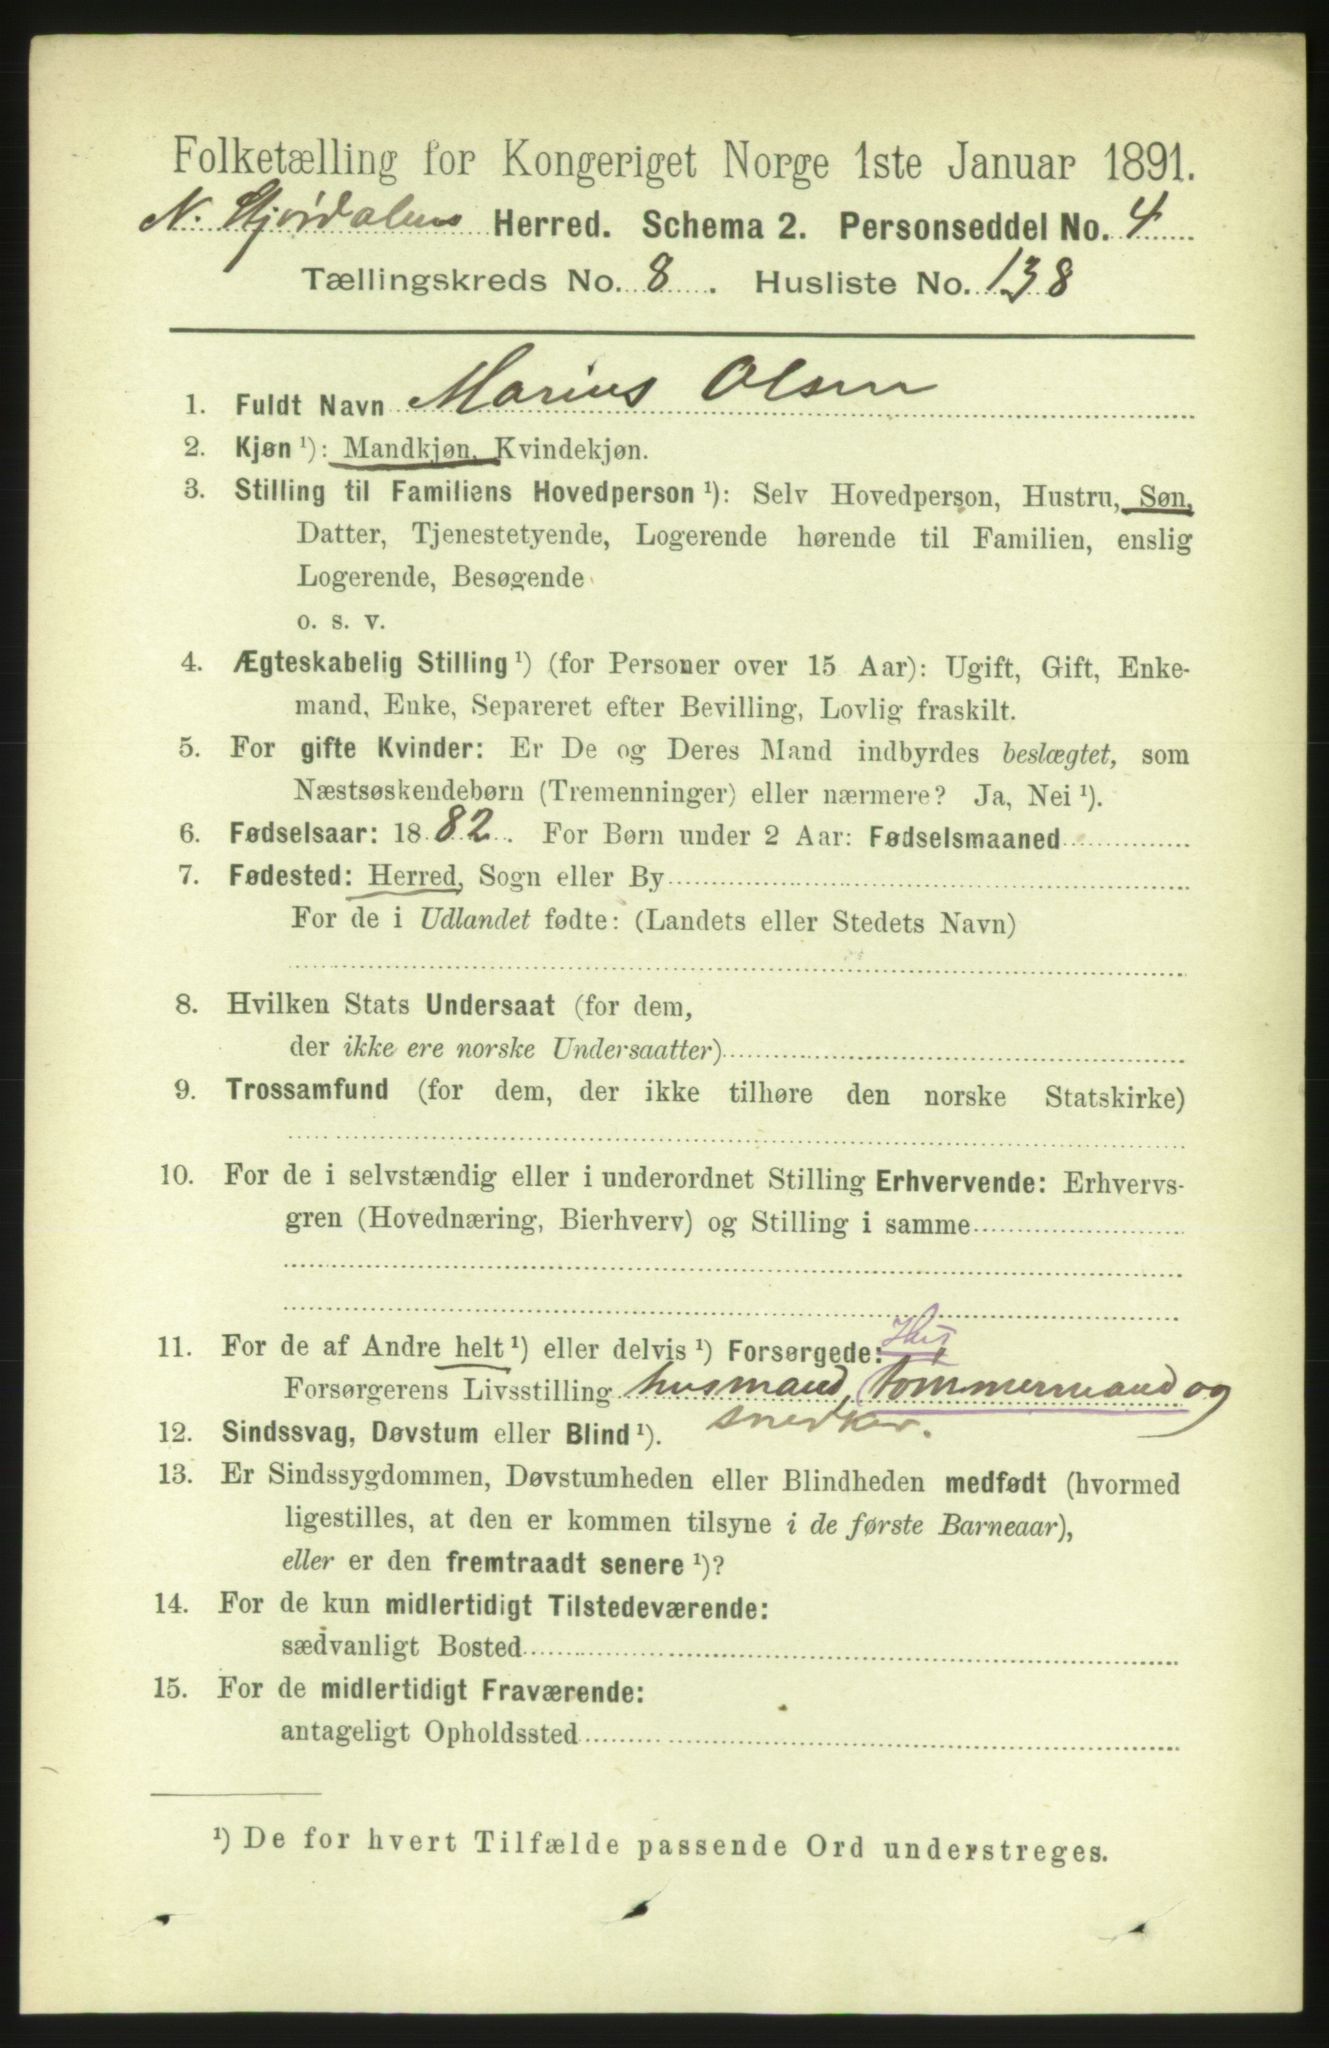 Folketælling for Kongeriget Norge 1ste Januar 1891.
N. Stjørdalens Herred. Schema 2. Personseddel No. 4
Tællingskreds No. 8. Husliste No. 138
1. Fuldt Navn Marius Olsen
2. Kjøn ¹): Mandkjøn, Kvindekjøn.
3. Stilling til Familiens Hovedperson ¹): Selv Hovedperson, Hustru, Søn,
Datter, Tjenestetyende, Logerende hørende til Familien, enslig
Logerende, Besøgende
o. s. v.
4. Ægteskabelig Stilling ¹) (for Personer over 15 Aar): Ugift, Gift, Enke-
mand, Enke, Separeret efter Bevilling, Lovlig fraskilt.
5. For gifte Kvinder: Er De og Deres Mand indbyrdes beslægtet, som
Næstsøskendebørn (Tremenninger) eller nærmere? Ja, Nei ¹).
6. Fødselsaar: 1882. For Børn under 2 Aar: Fødselsmaaned
7. Fødested: Herred, Sogn eller By
For de i Udlandet fødte: (Landets eller Stedets Navn)
8. Hvilken Stats Undersaat (for dem,
der ikke ere norske Undersaatter)
9. Trossamfund (for dem, der ikke tilhøre den norske Statskirke)
10. For de i selvstændig eller i underordnet Stilling Erhvervende: Erhvervs-
gren (Hovednæring, Bierhverv) og Stilling i samme
11. For de af Andre helt ¹) eller delvis ¹) Forsørgede: Hus
Forsørgerens Livsstilling husmand, tommermand og
snedker.
12. Sindssvag, Døvstum eller Blind ¹).
13. Er Sindssygdommen, Døvstumheden eller Blindheden medfødt (hvormed
ligestilles, at den er kommen tilsyne i de første Barneaar),
eller er den fremtraadt senere ¹)?
14. For de kun midlertidigt Tilstedeværende:
sædvanligt Bosted
15. For de midlertidigt Fraværende:
antageligt Opholdssted
¹) De for hvert Tilfælde passende Ord understreges.